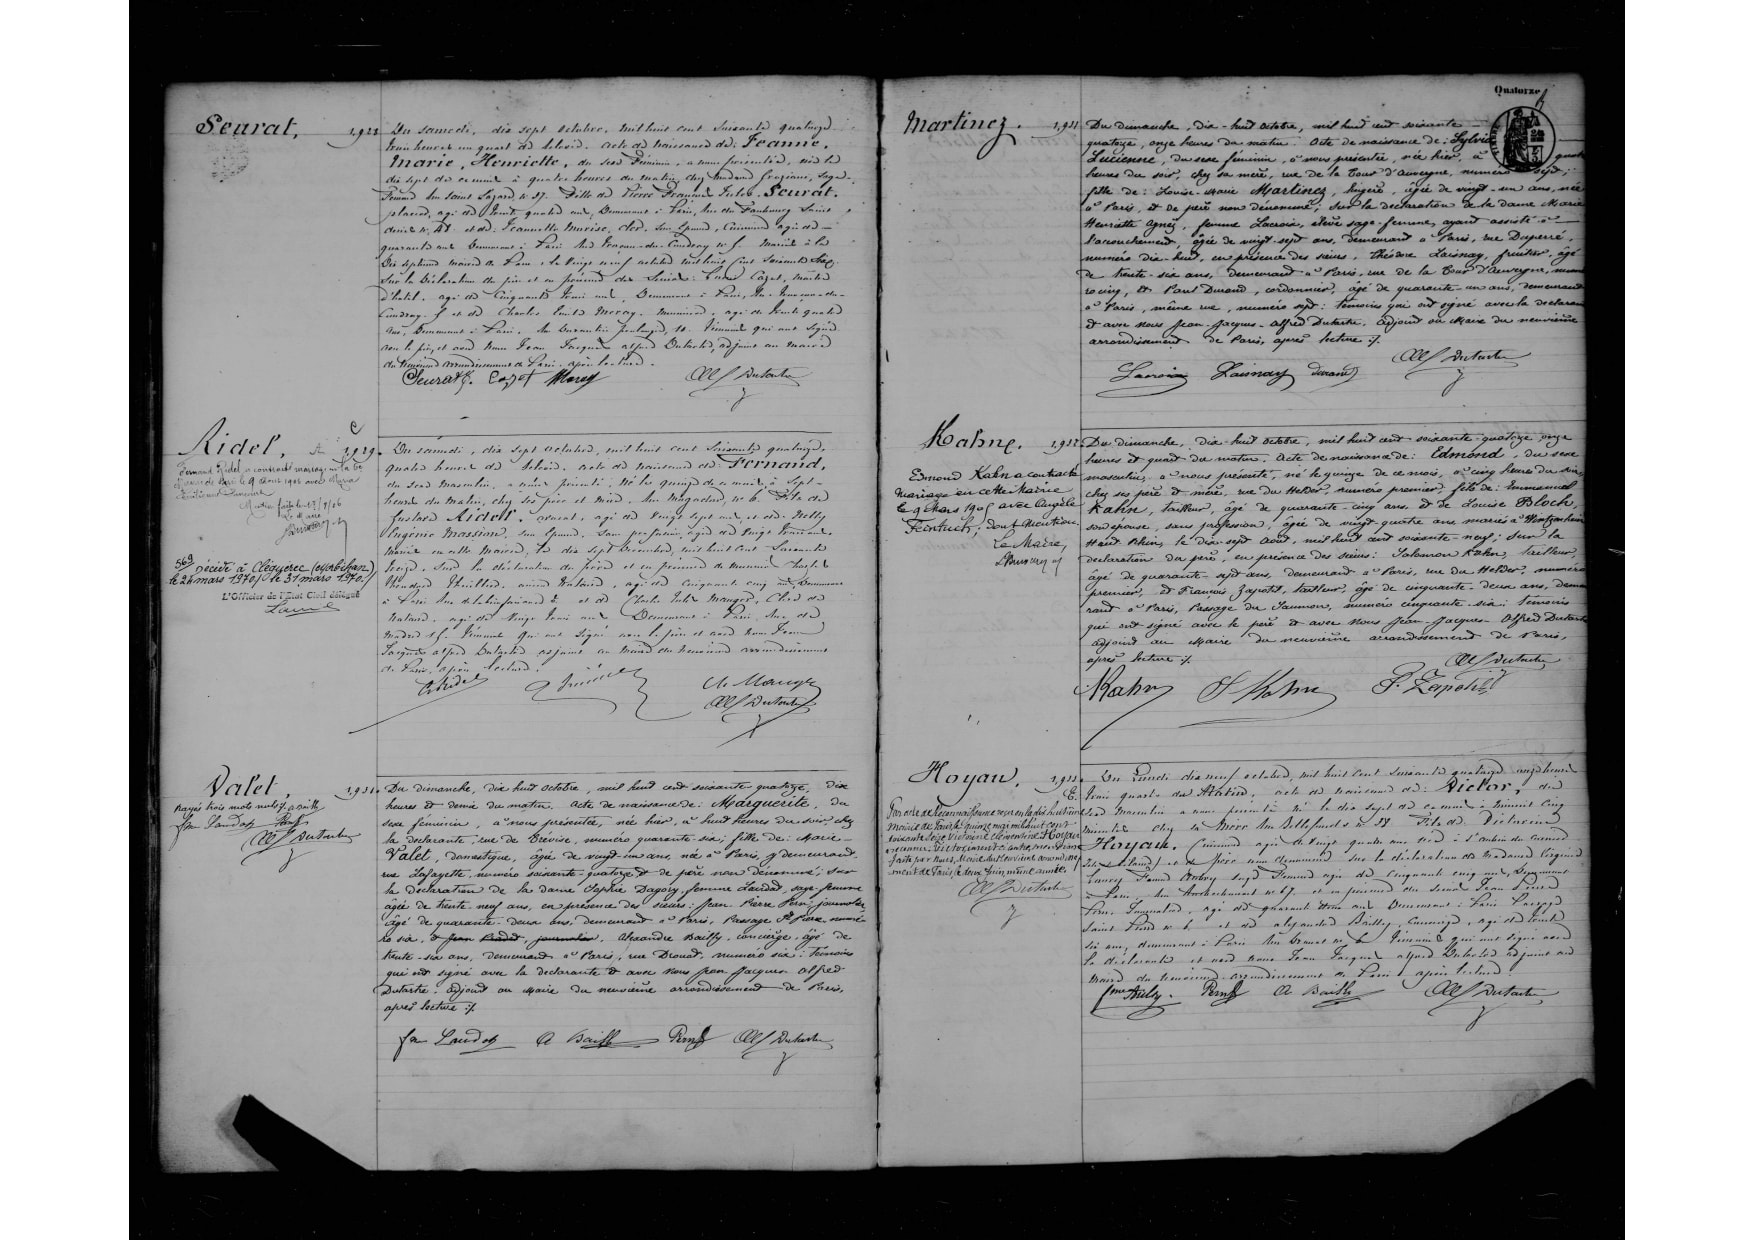 Seurat.
Du samedi, dix sept octobre, mil huit cent soixante quatorze
trois heures un quart du soir. Acte de naissance de: Jeanne,
Marie, Henriette, du sexe féminin, a nous présenté, née le
dix sept du courant à quatre heures du matin, chez Madame
Femme rue Saint Lazare n. 37. Fille de Pierre Seurat,
âgé de trente quatre ans, demeurant à Paris, rue du Faubourg Saint
Denis n. 48 et de Jeannette son épouse, âgée de
quarante ans demeurant à Paris
sur la déclaration du père et en présence des sieurs: Cazet, maître
d'hôtel, âgé de cinquante trois ans, demeurant à Paris, rue
et de Charles Emile Moray, menuisier, âgé de trente quatre
ans, demeurant à Paris, 10. Témoins qui ont signé
avec le père et avec nous Jean Jacques Alfred Dutartre, adjoint au maire
du neuvième arrondissement de Paris, après lecture.
Seurat Cazet Moray Alf Dutartre
Ridel, 1929.
Fernand Ridel a contracté mariage
Paris le 9 avec Maria
Mention faite le
Le Maire
569
Décédé à Cléguerec (Morbihan)
le 24 mars 1970. le 31 mars 1970.
L'Officier de l'Etat Civil délégué
Du samedi, dix sept octobre, mil huit cent soixante quatorze,
quatre heures du soir. Acte de naissance de: Fernand,
du sexe masculin, a nous présenté, né le quinze de ce mois, à sept
heures du matin, chez ses père et mère, rue Mogador n. 6. Fils de
Gustave Ridel, avocat, âgé de vingt sept ans et de Nelly
Eugénie Massion, son épouse, sans profession, âgée de vingt trois ans,
mariés en cette mairie, le dix sept décembre, mil huit cent soixante
treize, sur la déclaration du père et en présence de messieurs Charles
Thuillier, ancien notaire, âgé de cinquante cinq ans, demeurant
à Paris et de Charles Jules Mauger, clerc de
notaire, âgé de vingt trois ans, demeurant à Paris, rue de
Madrid 15. Témoins qui ont signé avec le père et avec nous Jean
Jacques Alfred Dutartre adjoint au maire du neuvième arrondissement
de Paris, après lecture.
G Ridel Ch Mauger
Alf Dutartre
Valet.
Rayés trois mots nuls
fe Laudot Perny
Alf Dutartre
Du dimanche, dix huit octobre, mil huit cent soixante-quatorze, dix
heures et demie du matin. Acte de naissance de: Marguerite, du
sexe féminin, à nous présentée, née hier, à huit heures du soir, chez
la déclarante, rue de Trévise, numéro quarante-six; fille de: Marie
Valet, domestique, âgée de vingt-un ans, née à Paris, y demeurant,
rue Lafayette, numéro soixante-quatorze, et de père non dénommé; sur
la déclaration de la dame Sophie Dagory, femme Laudot, sage-femme
âgée de trente-neuf ans, en présence des sieurs: Jean Pierre Perny, journalier,
âgé de quarante-deux ans, demeurant à Paris, Passage St Pierre, numé-
ro six, et Jean Pradet, journalier, Alexandre Bailly, concierge, âgé de
trente-six ans, demeurant à Paris, rue Drouot, numéro six: Témoins
qui ont signé avec la déclarante et avec nous Jean Jacques Alfred
Dutartre, adjoint au Maire du neuvième arrondissement de Paris,
après lecture ./.
fe Laudot A Bailly Perny Alf Dutartre
Quatorze
Martinez. 1931
Du dimanche, dix-huit octobre, mil huit cent soixante-
quatorze, onze heures du matin. Acte de naissance de: Sylvie
Lucienne, du sexe féminin, à nous présentée, née hier, à quatre
heures du soir, chez sa mère, rue de la Tour d'Auvergne, numéro sept;
fille de: Louise-Marie Martinez, lingère, âgée de vingt-un ans, née
à Paris, et de père non dénommé; sur la déclaration de la dame Marie
Henriette Agnès, femme Lacroix, élève sage-femme, ayant assisté à
l'accouchement, âgée de vingt-sept ans, demeurant à Paris, rue Duperré,
numéro dix-huit, en présence des sieurs, Théodore Laisnay, fruitier, âgé
de trente-six ans, demeurant à Paris, rue de la Tour d'Auvergne, numéro
cinq, et Paul Durand, cordonnier, âgé de quarante-un ans, demeurant
à Paris, même rue, numéro sept: témoins qui ont signé avec la déclarante
et avec nous Jean-Jacques-Alfred Dutartre, adjoint au Maire du neuvième
arrondissement de Paris, après lecture ./.
Alf Dutartre
Lacroix Laisnay Durand
Kahn. 1932
Edmond Kahn a contracté
mariage en cette Mairie
le 9 Mars 1905 avec Angèle
Feintuch; dont mention,
Le Maire,
Du dimanche, dix-huit octobre, mil huit cent soixante-quatorze onze
heures et quart du matin. Acte de naissance de: Edmond, du sexe
masculin, à nous présenté, né le quinze de ce mois, à cinq heures du soir,
chez ses père et mère, rue du Helder, numéro premier, fils de: Emmanuel
Kahn, tailleur, âgé de quarante-cinq ans, et de Louise Bloch,
son épouse, sans profession, âgée de vingt-quatre ans mariés à Wintzenheim
Haut Rhin, le dix-sept Août, mil huit cent soixante-neuf; sur la
déclaration du père, en présence des sieurs: Salomon Kahn, tailleur,
âgé de quarante-sept ans, demeurant à Paris, rue du Helder, numéro
premier, et François Zapotil, tailleur, âgé de cinquante-deux ans, demeu-
rant à Paris, Passage du Saumon, numéro cinquante-six: témoins
qui ont signé avec le père et avec nous Jean-Jacques-Alfred Dutartre
adjoint au Maire du neuvième arrondissement de Paris,
après lecture ./.
Alf Dutartre
Kahn S Kahn F. Zapotil
Hoyau.
Par acte de reconnaissance reçu en la dix huitième
mairie de Paris le quinze mai mil huit cent
soixante seize Victorine Clémentine Hoyau
a reconnu Victor, inscrit ci contre, mention
faite par nous, Maire du neuvième arrondisse-
ment de Paris, le deux Juin même année.
Alf Dutartre
Du Lundi dix neuf octobre, mil huit cent soixante quatorze onze heures
trois quarts du matin, acte de naissance de: Victor, du
sexe masculin a nous présenté né le dix sept de ce mois à minuit cinq
minutes chez sa mère rue Bellefond n. 38 fils de Victorine
Hoyau, cuisinière âgée de vingt quatre ans née à
et de père non dénommé sur la déclaration de madame Virginie
Femme Aubry sage femme âgée de cinquante cinq ans, demeurant
à Paris, rue Rochechouart n. 67 et en présence des sieurs Jean Pierre
Perny journalier, âgé de quarante deux ans demeurant à Paris passage
Saint Pierre n. 6 et de Alexandre Bailly, concierge, âgé de trente
six ans, demeurant à Paris rue Drouot n. 6 témoins qui ont signé avec
la déclarante et avec nous Jean Jacques Alfred Dutartre adjoint au
maire du neuvième arrondissement de Paris après lecture.
fme Aubry. Perny A Bailly Alf Dutartre